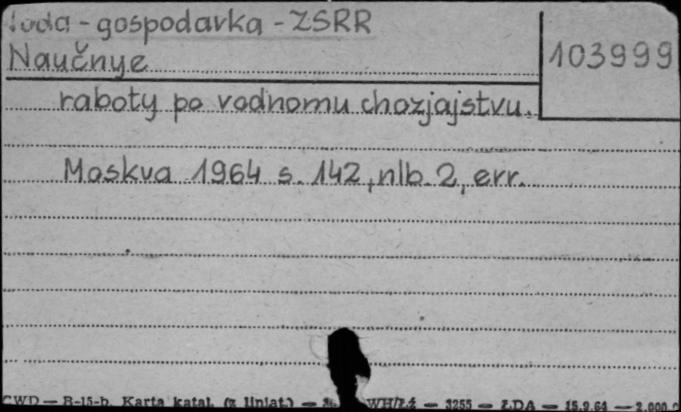 Woda - gospodarka - ZSRR
Naučnye
103999
raboty po vodnomu chozjajstvu.
Moskva 1964 s. 142, nlb. 2, err.
CWD — B-15-b. Karta katal. (z liniat.) — WH/Łż — 3255 — ŁDA — 15.9.64 — 2.000.0